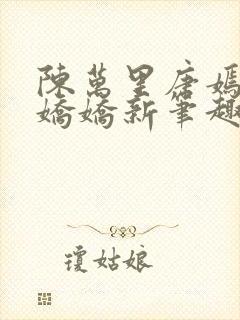 陳萬里唐嫣
嬌嬌新筆趣
瓊姑娘